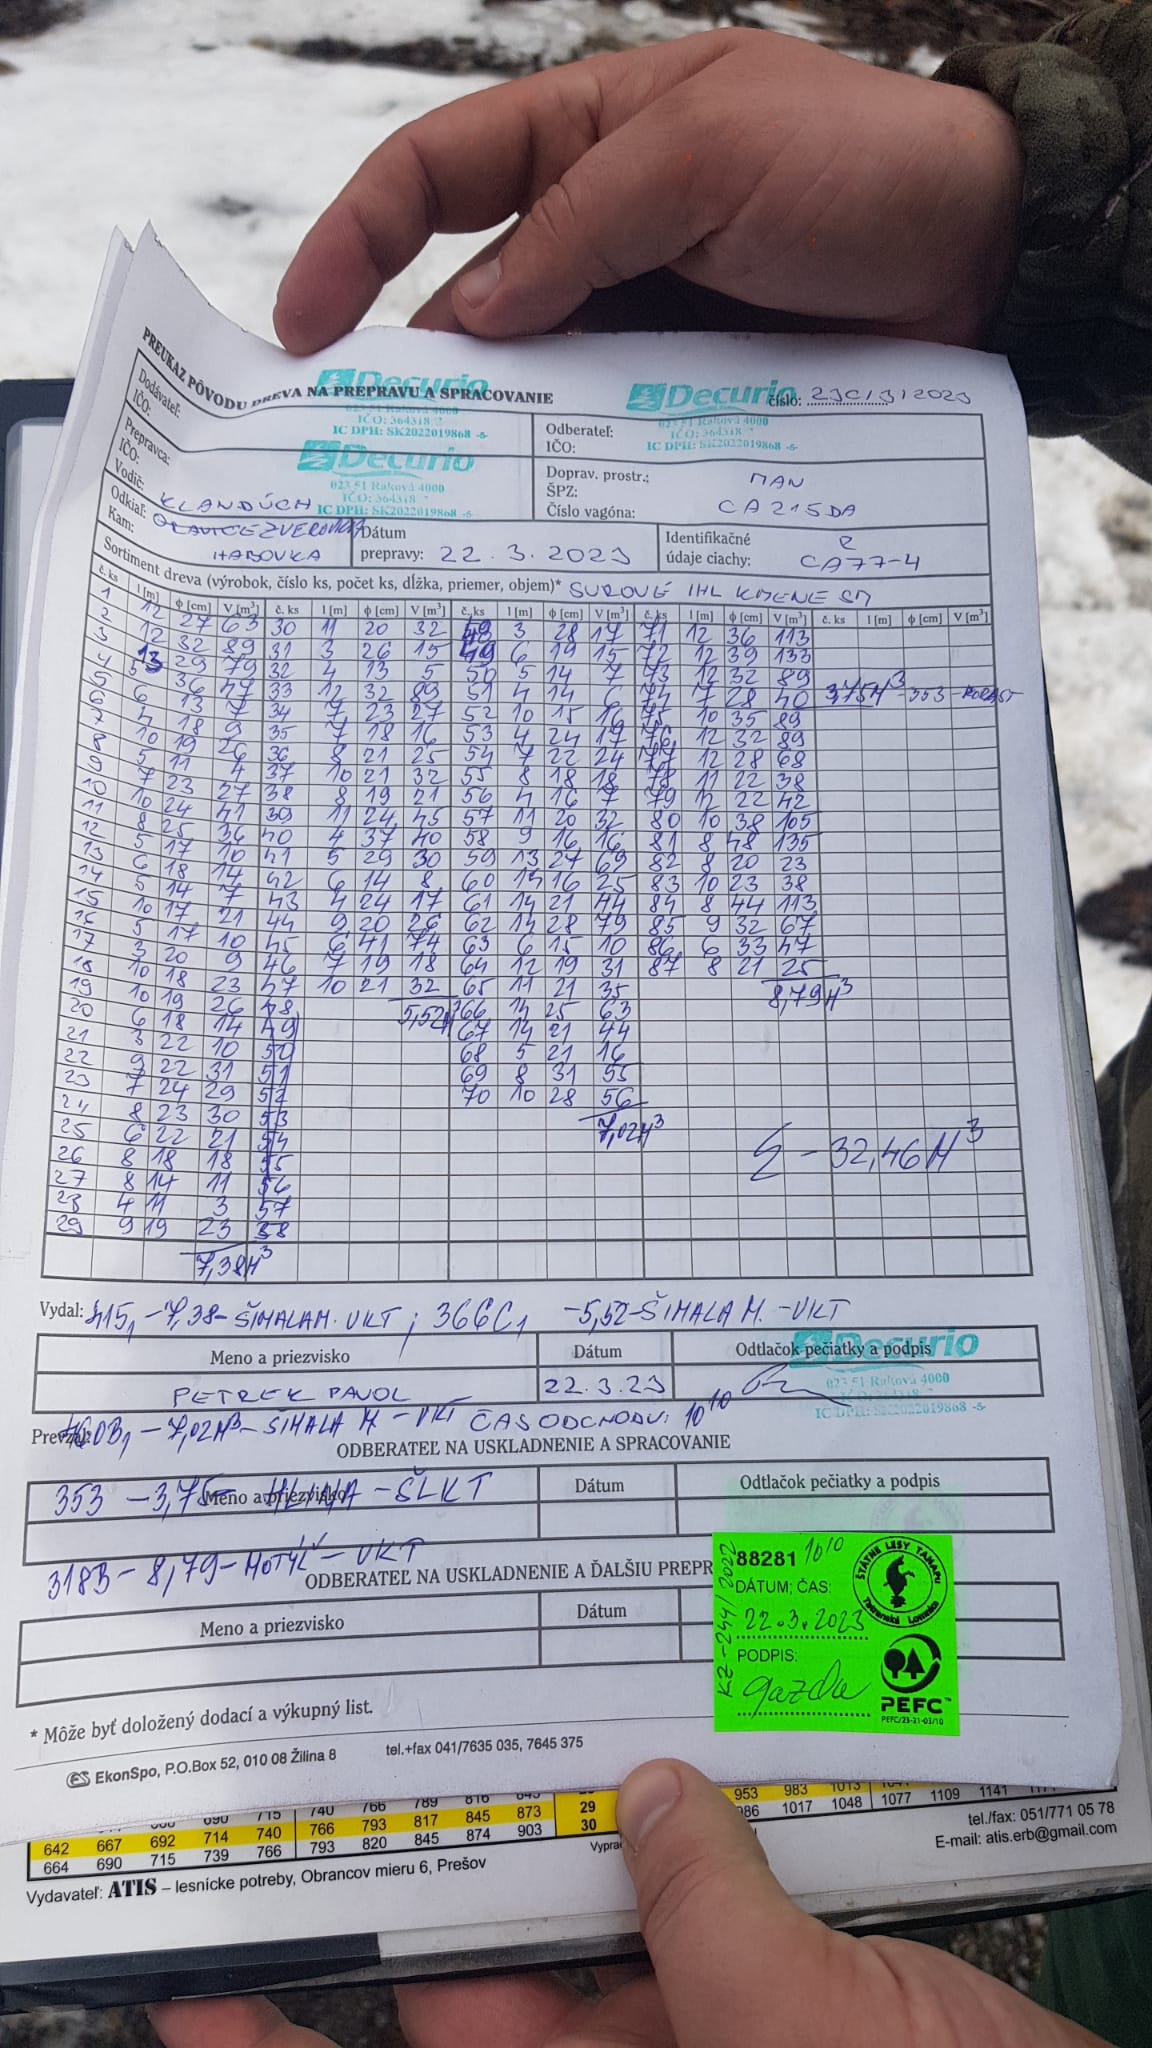 PREUKAZ PÔVODU DREVA NA PREPRAVU A SPRACOVANIE
číslo:
Decurio
023 51 Raková 4000
IČO: 364318
IC DPH: SK2022019868 -5-
Decurio
023 51 Raková 4000
IČO: 364318
IC DPH: SK2022019868 -5-
Decurio
023 51 Raková 4000
IČO: 364318
IC DPH: SK2022019868 -5-
Dodávateľ:
IČO:
Odberateľ:
IČO:
Prepravca:
IČO:
Vodič: KLANDÚCH
Doprav. prostr.: MAN
ŠPZ: CA215DA
Číslo vagóna:
Odkiaľ:
Kam: HABOVKA
Dátum
prepravy: 22.3.2023
Identifikačné
údaje ciachy: CA77-4
Sortiment dreva (výrobok, číslo ks, počet ks, dĺžka, priemer, objem)* SUROVÉ IHL KMENE SM
č. ks l [m] ϕ [cm] V [m³] č. ks l [m] ϕ [cm] V [m³] č. ks l [m] ϕ [cm] V [m³] č. ks l [m] ϕ [cm] V [m³] č. ks l [m] ϕ [cm] V [m³]
1 12 27 63 30 11 20 32 48 3 28 17 71 12 36 113
2 12 32 89 31 3 26 15 49 6 19 15 72 12 39 133
3 13 29 79 32 4 13 5 50 5 14 7 73 12 32 89
4 5 36 47 33 12 32 89 51 4 14 6 74 7 28 40 3,75M³ - 353 - PORAST
5 6 13 7 34 7 23 27 52 10 15 16 75 10 35 89
6 4 18 9 35 7 18 16 53 4 24 17 76 12 32 89
7 10 19 26 36 8 21 25 54 7 22 24 77 12 28 68
8 5 11 4 37 10 21 32 55 8 18 18 78 11 22 38
9 7 23 27 38 8 19 21 56 4 16 7 79 12 22 42
10 10 24 41 39 11 24 45 57 11 20 32 80 10 38 105
11 8 25 36 40 4 37 40 58 9 16 16 81 8 48 135
12 5 17 10 41 5 29 30 59 13 27 69 82 8 20 23
13 6 18 14 42 6 14 8 60 14 16 25 83 10 23 38
14 5 14 7 43 4 24 17 61 14 21 44 84 8 44 113
15 10 17 21 44 9 20 26 62 14 28 79 85 9 32 67
16 5 17 10 45 6 41 74 63 6 15 10 86 6 33 47
17 3 20 9 46 7 19 18 64 12 19 31 87 8 21 25
18 10 18 23 47 10 21 32 65 11 21 35 8,79M³
19 10 19 26 48 5,52M³ 66 14 25 63
20 6 18 14 49 67 14 21 44
21 3 22 10 50 68 5 21 16
22 9 22 31 51 69 8 31 55
23 7 24 29 52 70 10 28 56
24 8 23 30 53 7,02M³
25 6 22 21 54 Σ - 32,46M³
26 8 18 18 55
27 8 14 11 56
28 4 11 3 57
29 9 19 23 58
7,38M³
Vydal: 415, -7,38-ŠIMALA M. VKT ; 366C, -5,52-ŠIMALA M. -VKT
Meno a priezvisko Dátum Odtlačok pečiatky a podpis
PETREK PAVOL 22.3.23
Decurio
023 51 Raková 4000
IČO: 364318
IC DPH: SK2022019868 -5-
Prevzal: -7,02M³-ŠIMALA M -VKT ČAS ODCHODU: 10¹⁰
ODBERATEĽ NA USKLADNENIE A SPRACOVANIE
Meno a priezvisko Dátum Odtlačok pečiatky a podpis
353 -3,75- HLINA -ŠLKT
318B - 8,79 - MOTÝĽ - VKT
ODBERATEĽ NA USKLADNENIE A ĎALŠIU PREPR
Meno a priezvisko Dátum
88281 10¹⁰
DÁTUM; ČAS:
22.3.2023
PODPIS:
gazda
KZ-244/2022
ŠTÁTNE LESY TANAPU
Tatranská Lomnica
PEFC™
PEFC/23-21-03/10
* Môže byť doložený dodací a výkupný list.
EkonSpo, P.O.Box 52, 010 08 Žilina 8 tel.+fax 041/7635 035, 7645 375
690 715 740 766 789 816 953 983 1013
642 667 692 714 740 766 793 817 845 873 29 1017 1048 1077 1109 1141
664 690 715 739 766 793 820 845 874 903 30
Vydavateľ: ATIS – lesnícke potreby, Obrancov mieru 6, Prešov
tel./fax: 051/771 05 78
E-mail: atis.erb@gmail.com